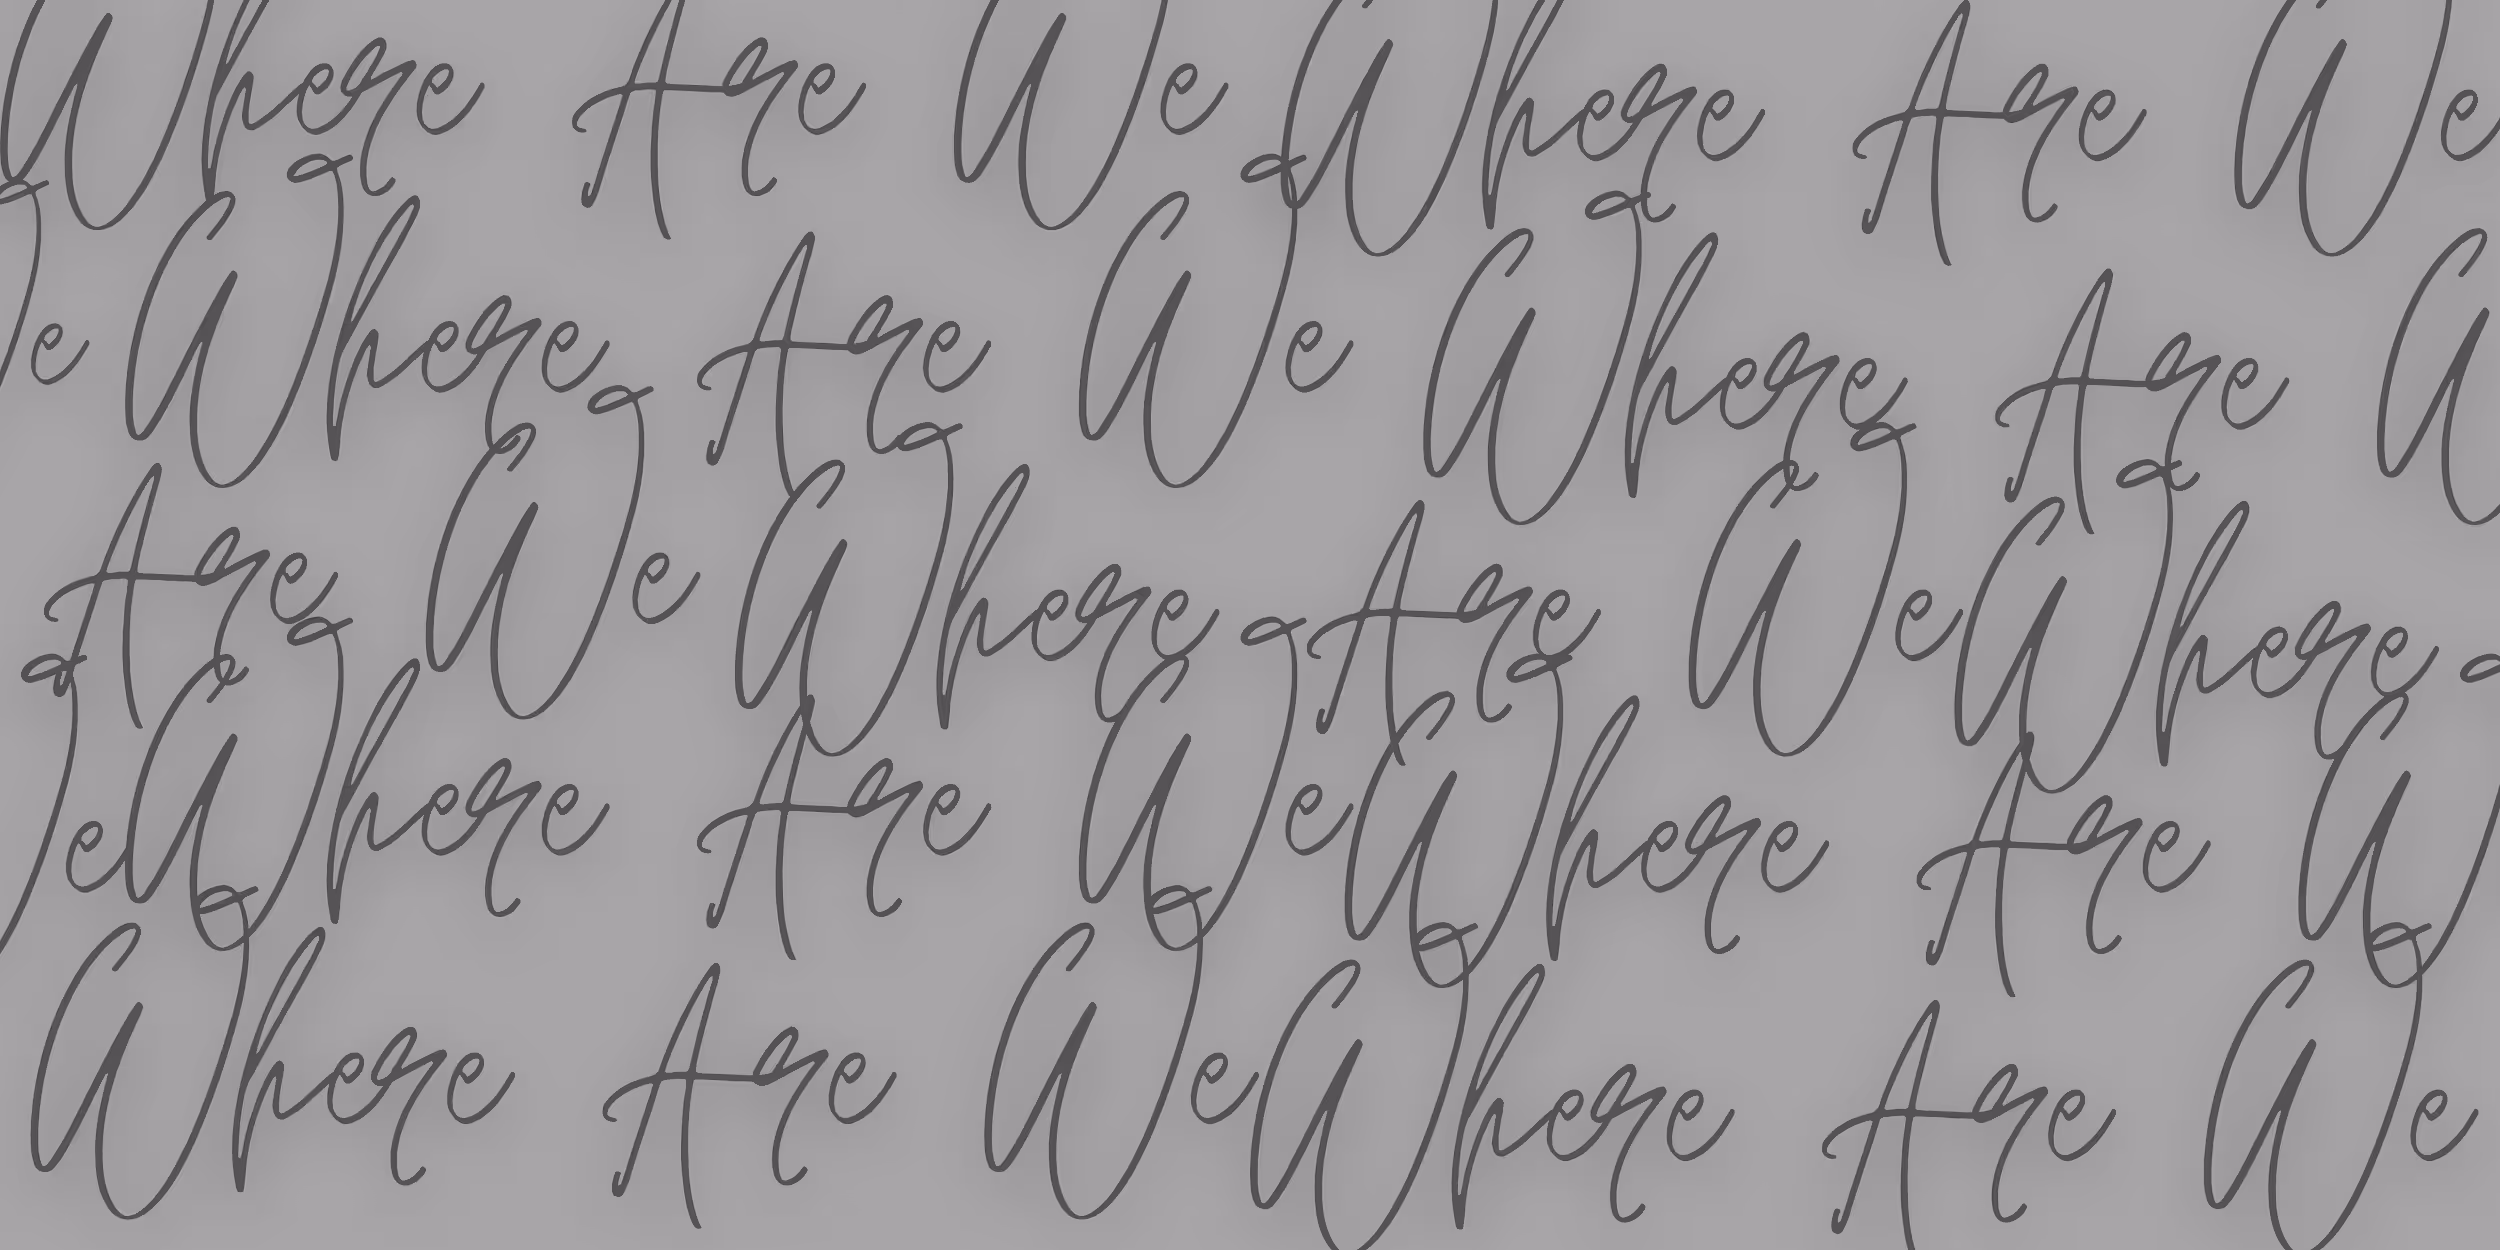 Where Are We Where Are We
e Where Are We Where Are W
Are We Where Are We Where
e Where Are We Where Are W
Where Are We Where Are We